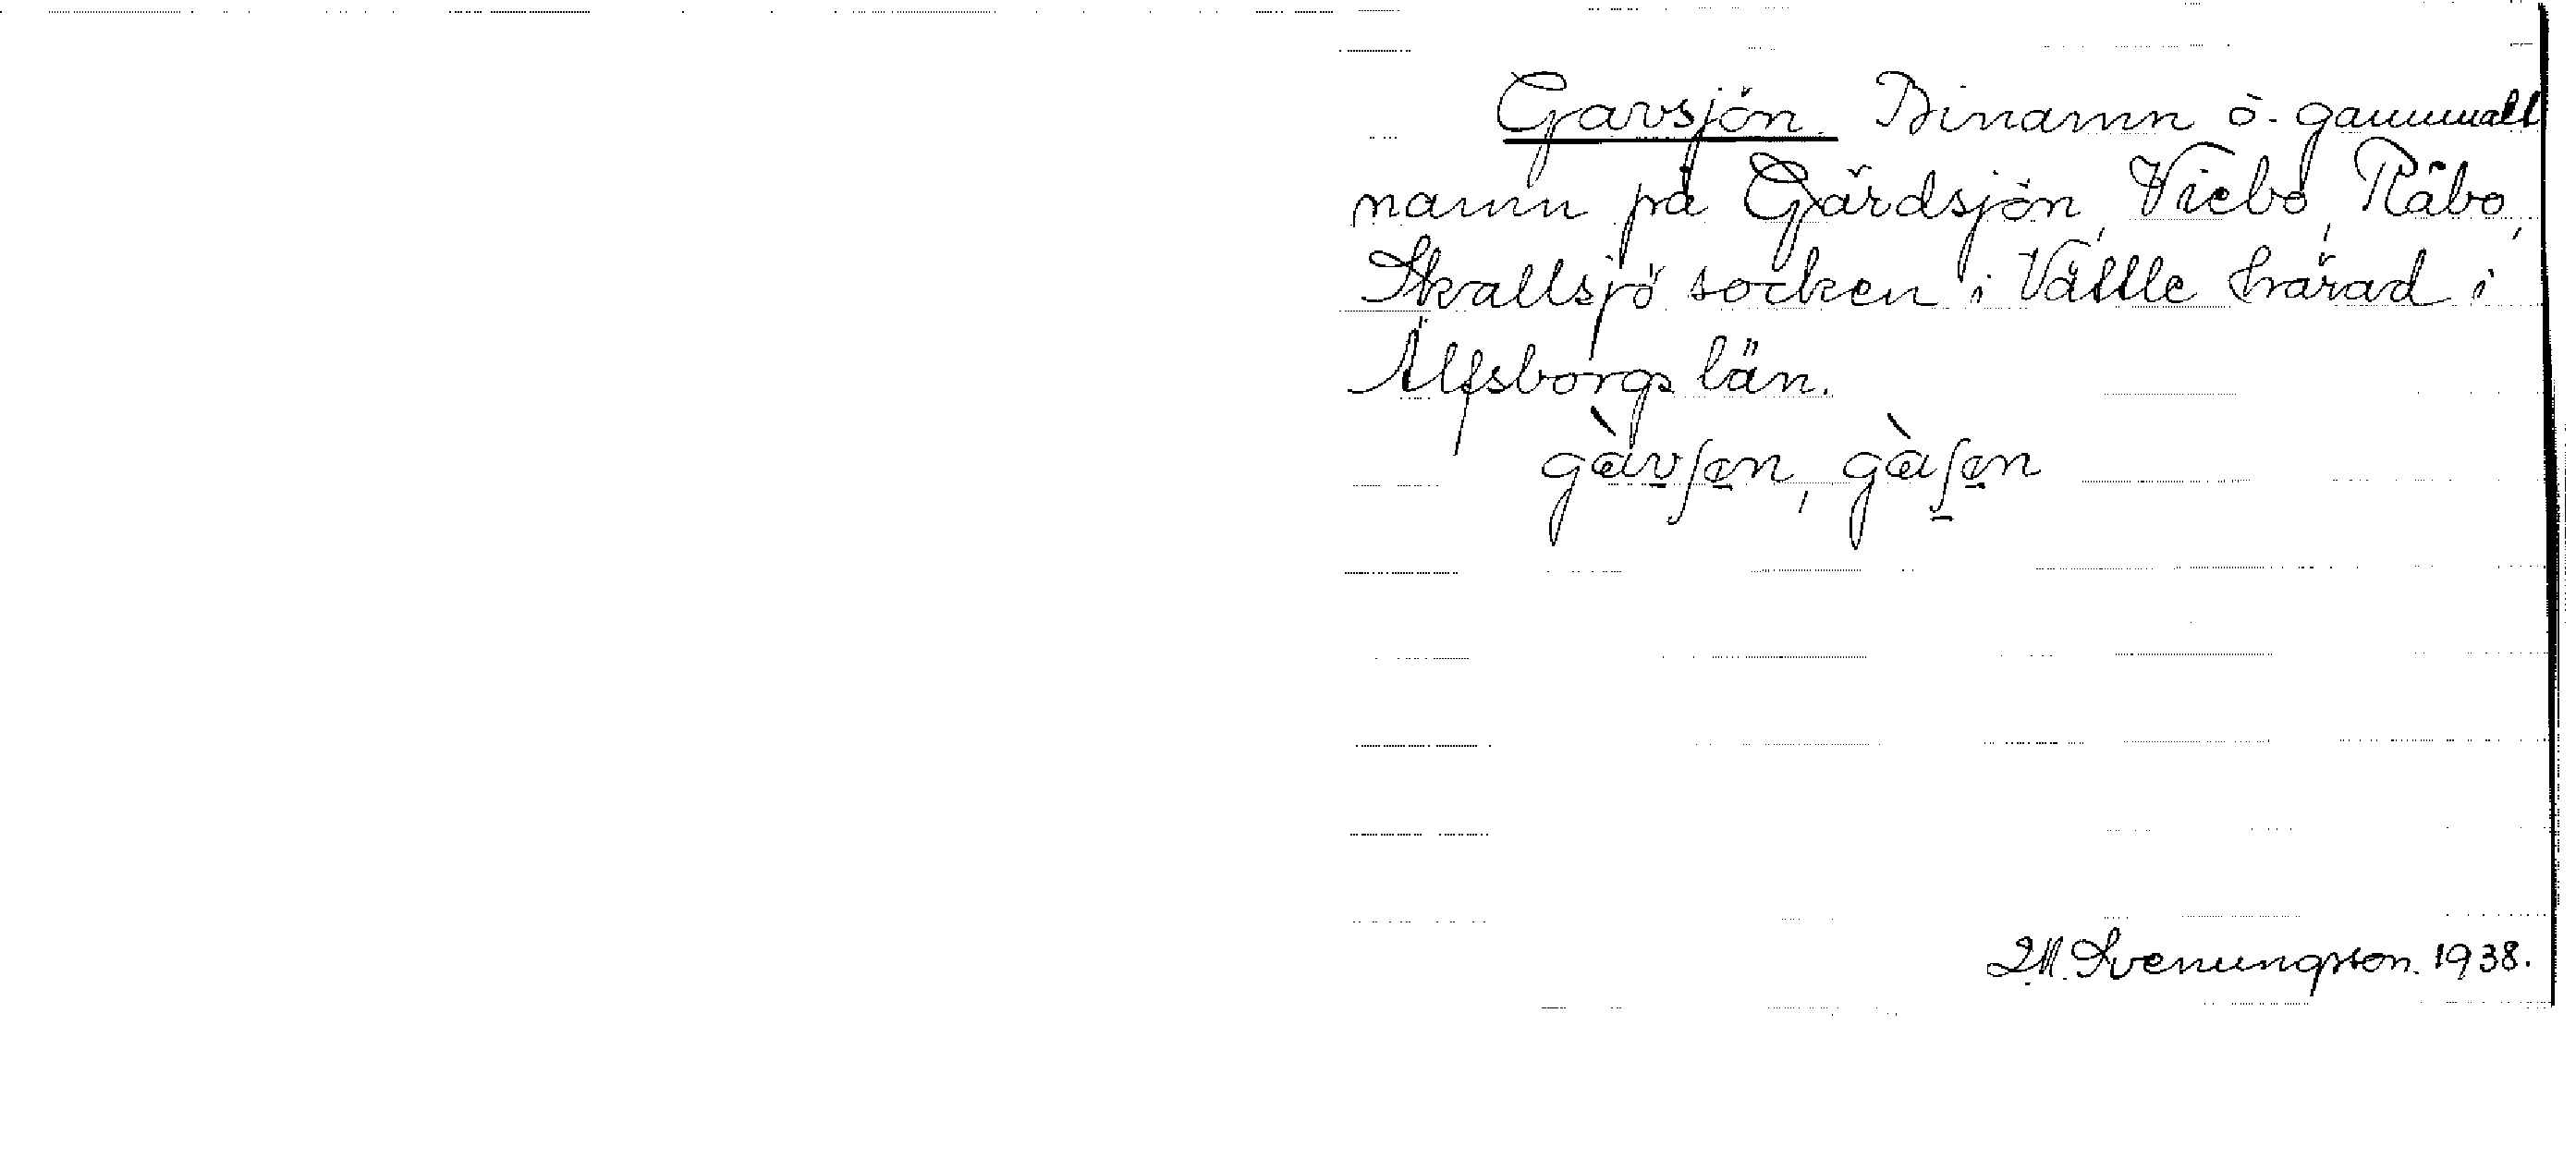 Gavsjön. Binamn ö. gammalt
namn på Gärdsjön, Viebo, Råbo,
Skallsjö socken i Vättle härad i
Älfsborgs län.
gàvʃen, gàʃen
M. Svenungsson. 1938.